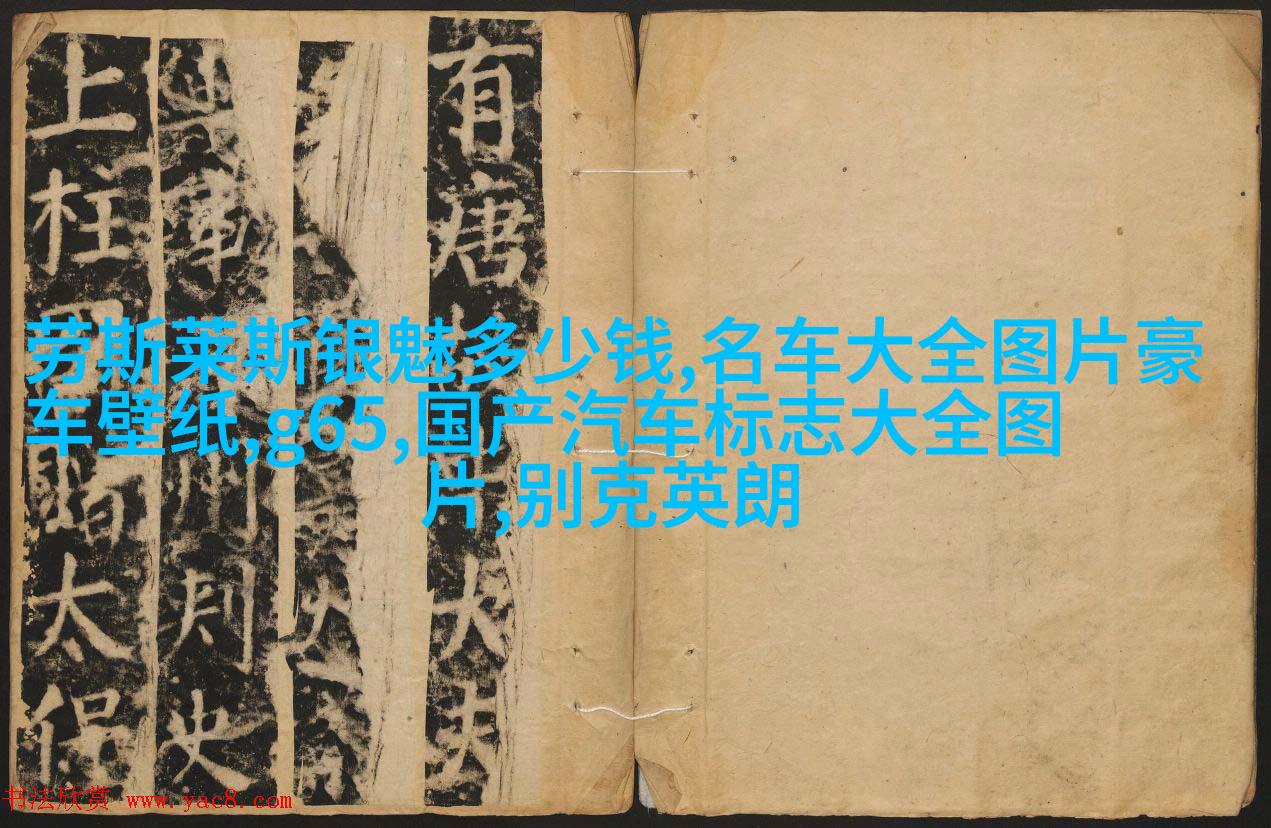 有唐
大夫
軍
州刾史
上柱國
太保
劳斯莱斯银魅多少钱,名车大全图片豪
车壁纸,g65,国产汽车标志大全图
片,别克英朗
书法欣赏 www.yac8.com